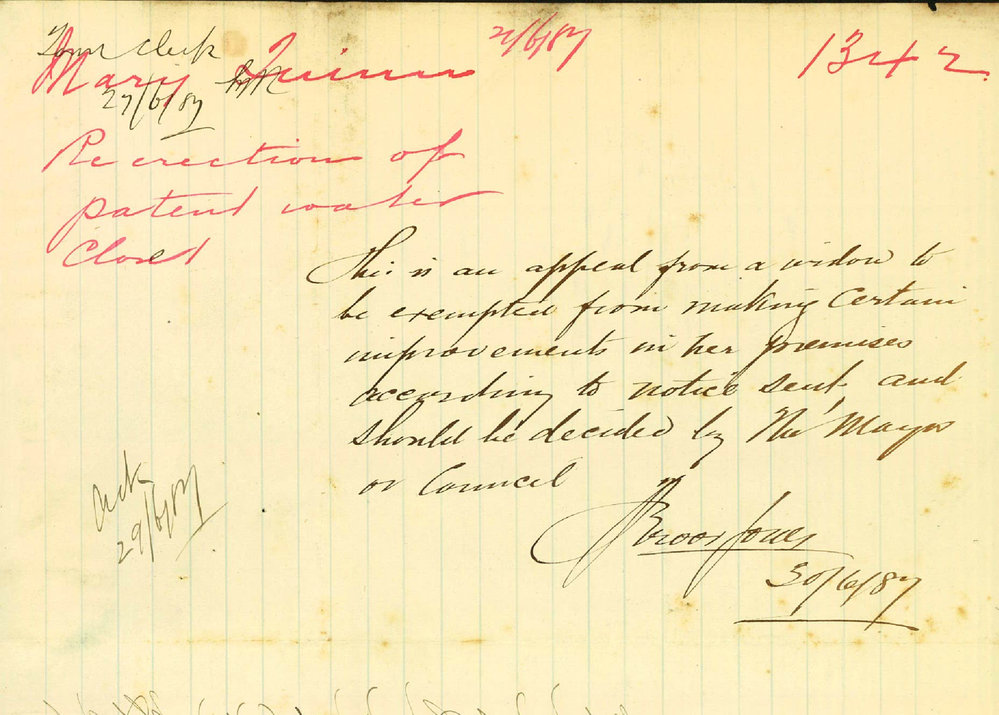 Town Clerk
Mary Quinn
27/6/87
2/6/87
1342
Re erection of
patent water
Closet
This is an appeal from a widow to
be exempted from making Certain
improvements in her premises
according to notice sent, and
should be decided by The Mayor
or Council
Ack
29/6/87
Jones
30/6/87